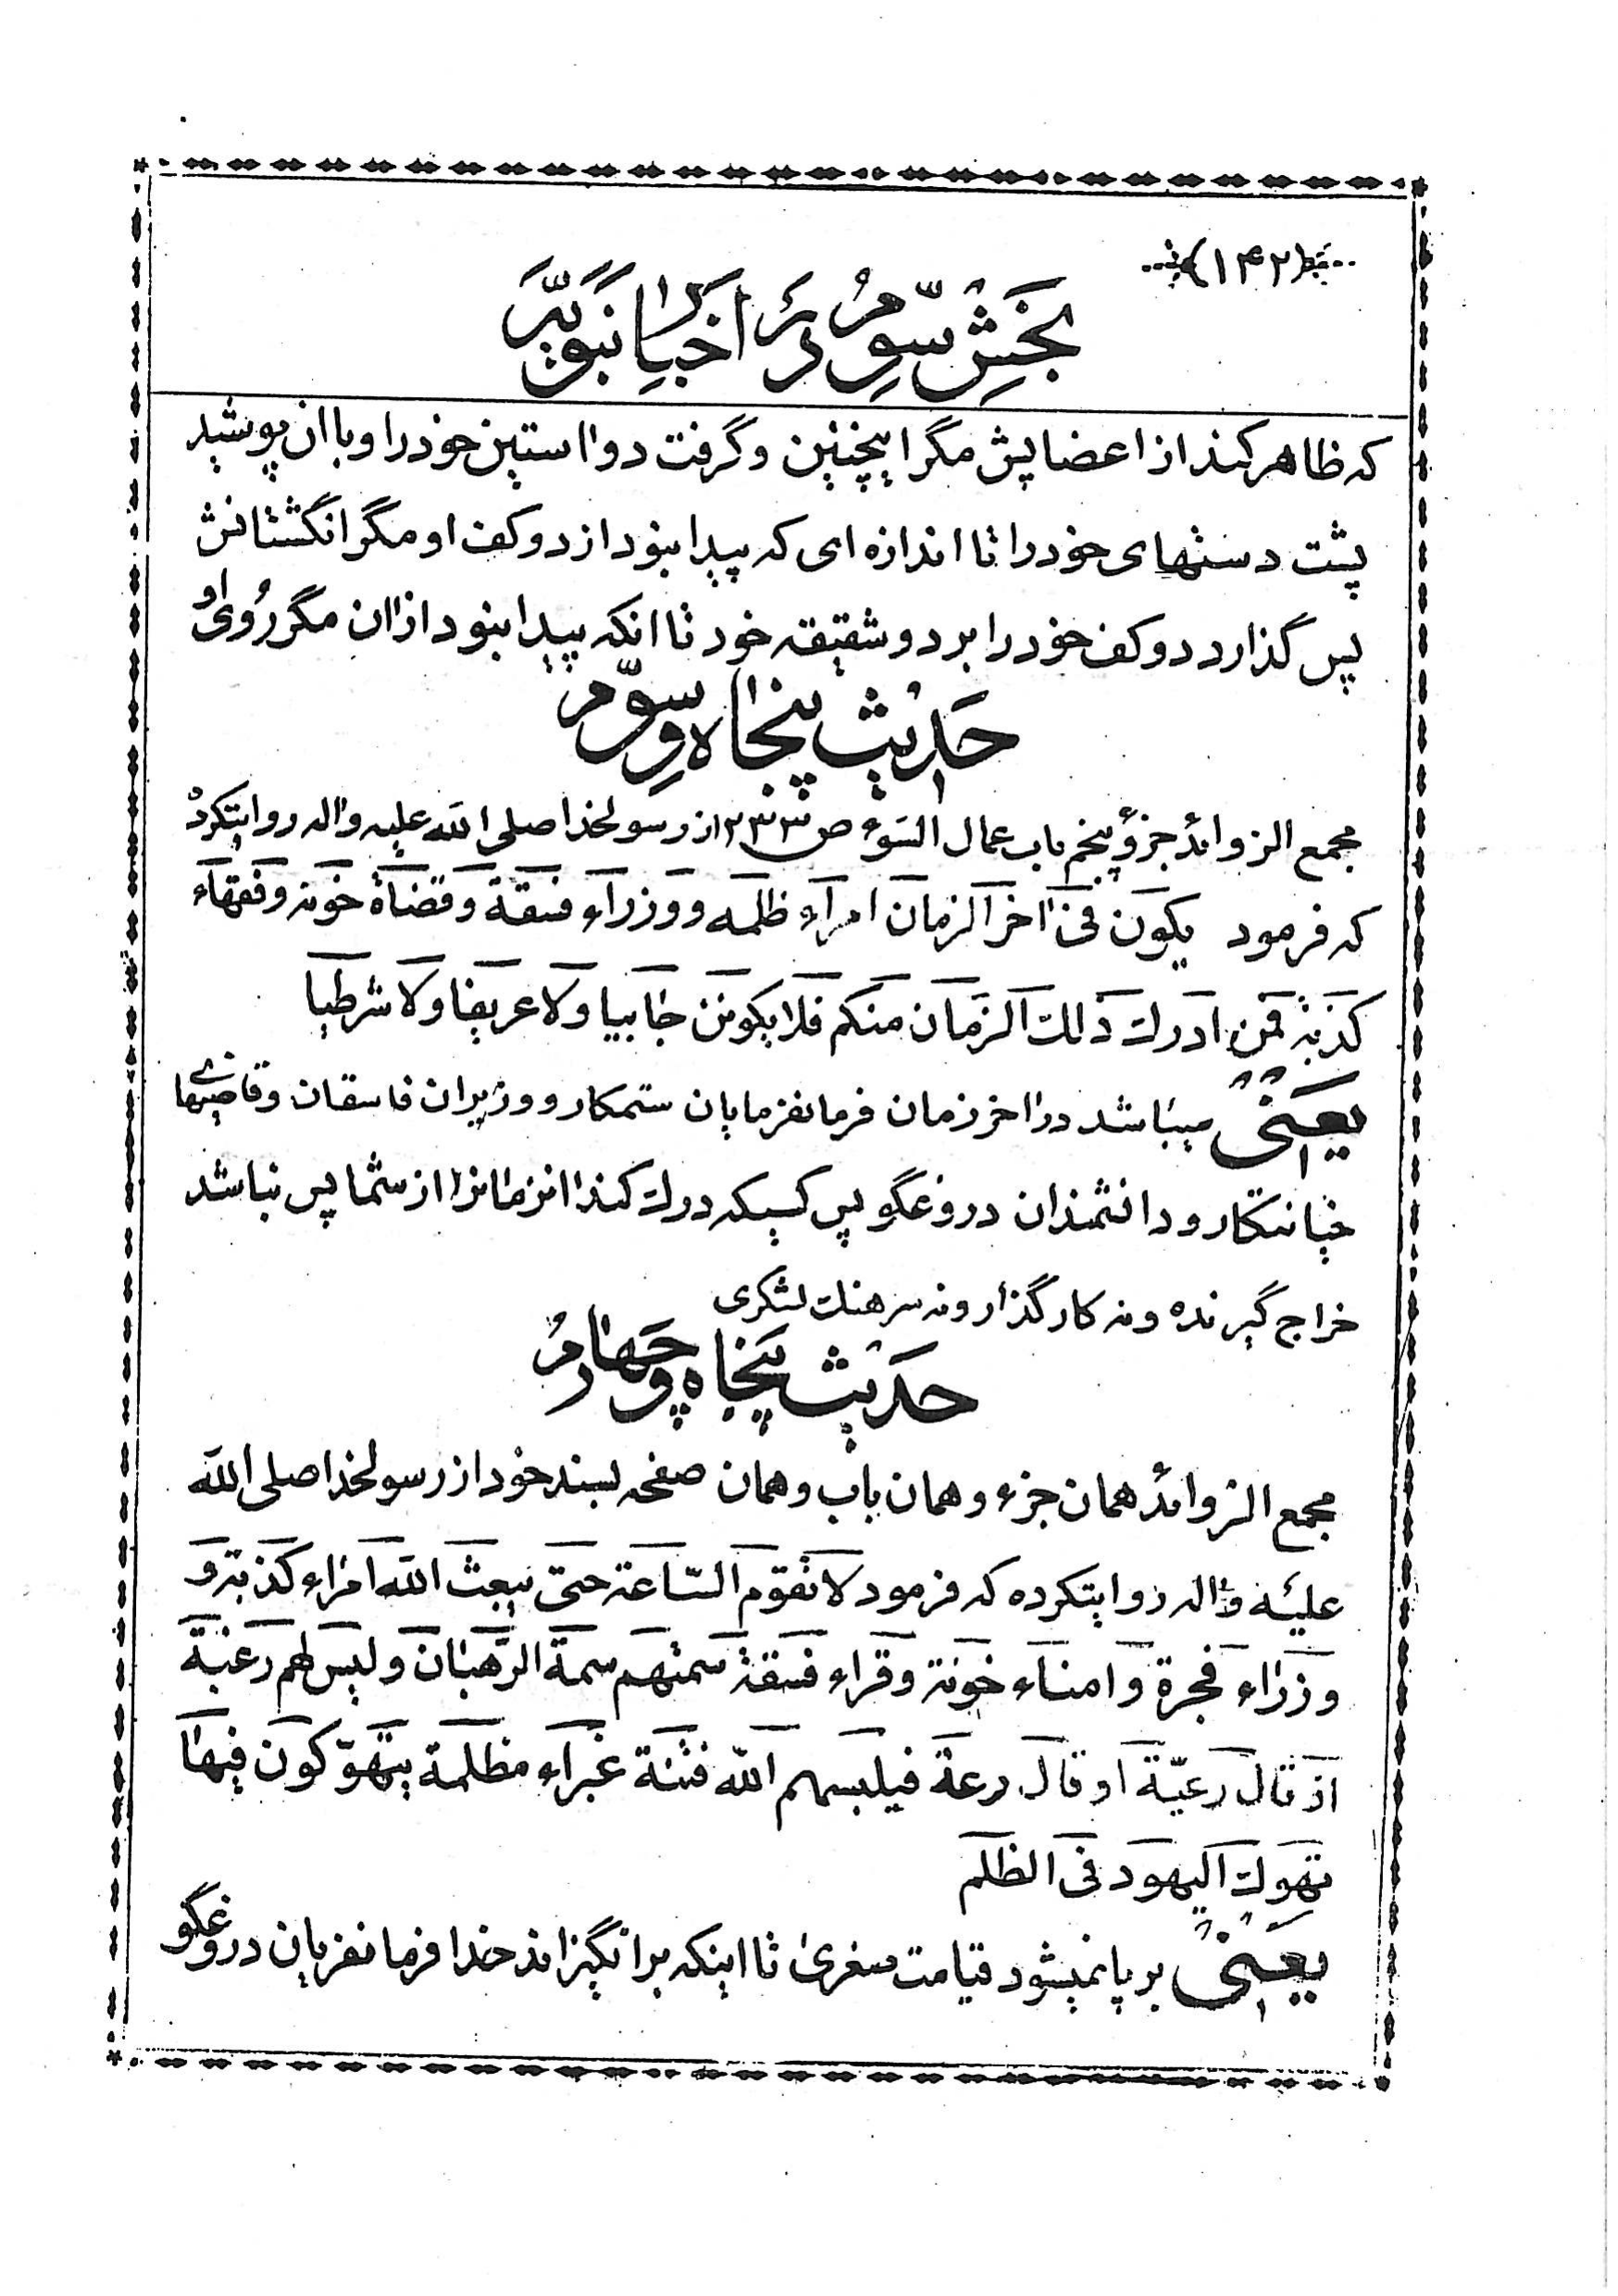 (۱۴۲)
بخش سوم در اخبار نبویه
که ظاهر کند از اعضایش مگر اینچنین و گرفت دو آستین خود را و با آن پوشید
پشت دستهای خود را تا اندازه ای که پیدا نبود از دو کف او مگر انگشتانش
پس گذارد دو کف خود را بر دو شقیقه خود تا آنکه پیدا نبود از آن مگر روی او
حدیث پنجاه و سوم
مجمع الزوائد جزؤ پنجم باب عمال السوء ص ۲۳۳ از رسولخدا صلی الله علیه و اله روایتکرد
که فرمود یکون فی اخر الزمان امراء ظلمه و وزراء فسقة و قضاة خونه و فقهاء
کذبة فمن ادرك ذلك الزمان منکم فلا یکونن جابیا ولا عریفا ولا شرطیا
یعنی میباشد در اخر زمان فرمانفرمایان ستمکار و وزیران فاسقان و قاضیهای
خیانتکار و دانشمندان دروغگو پس کسیکه درك کند انزمانرا از شما پس نباشد
خراج گیرنده و نه کارگذار و نه سرهنك لشکری
حدیث پنجاه و چهارم
مجمع الزوائد همان جزء و همان باب و همان صفحه بسند خود از رسولخدا صلی الله
علیه و اله روایتکرده که فرمود لا تقوم الساعة حتی یبعث الله امراء کذبة و
وزراء فجرة و امناء خونة و قراء فسقة سمتهم سمة الرهبان و لیس لهم رغبة
اذ قال رعیّة او قال رعة فیلبسهم الله فتنة غبراء مظلمة یتهوّکون فیها
تهوك الیهود فی الظلم
یعنی بر پا نمیشود قیامت صغری تا اینکه برانگیزاند خدا فرمانفرمایان دروغگو